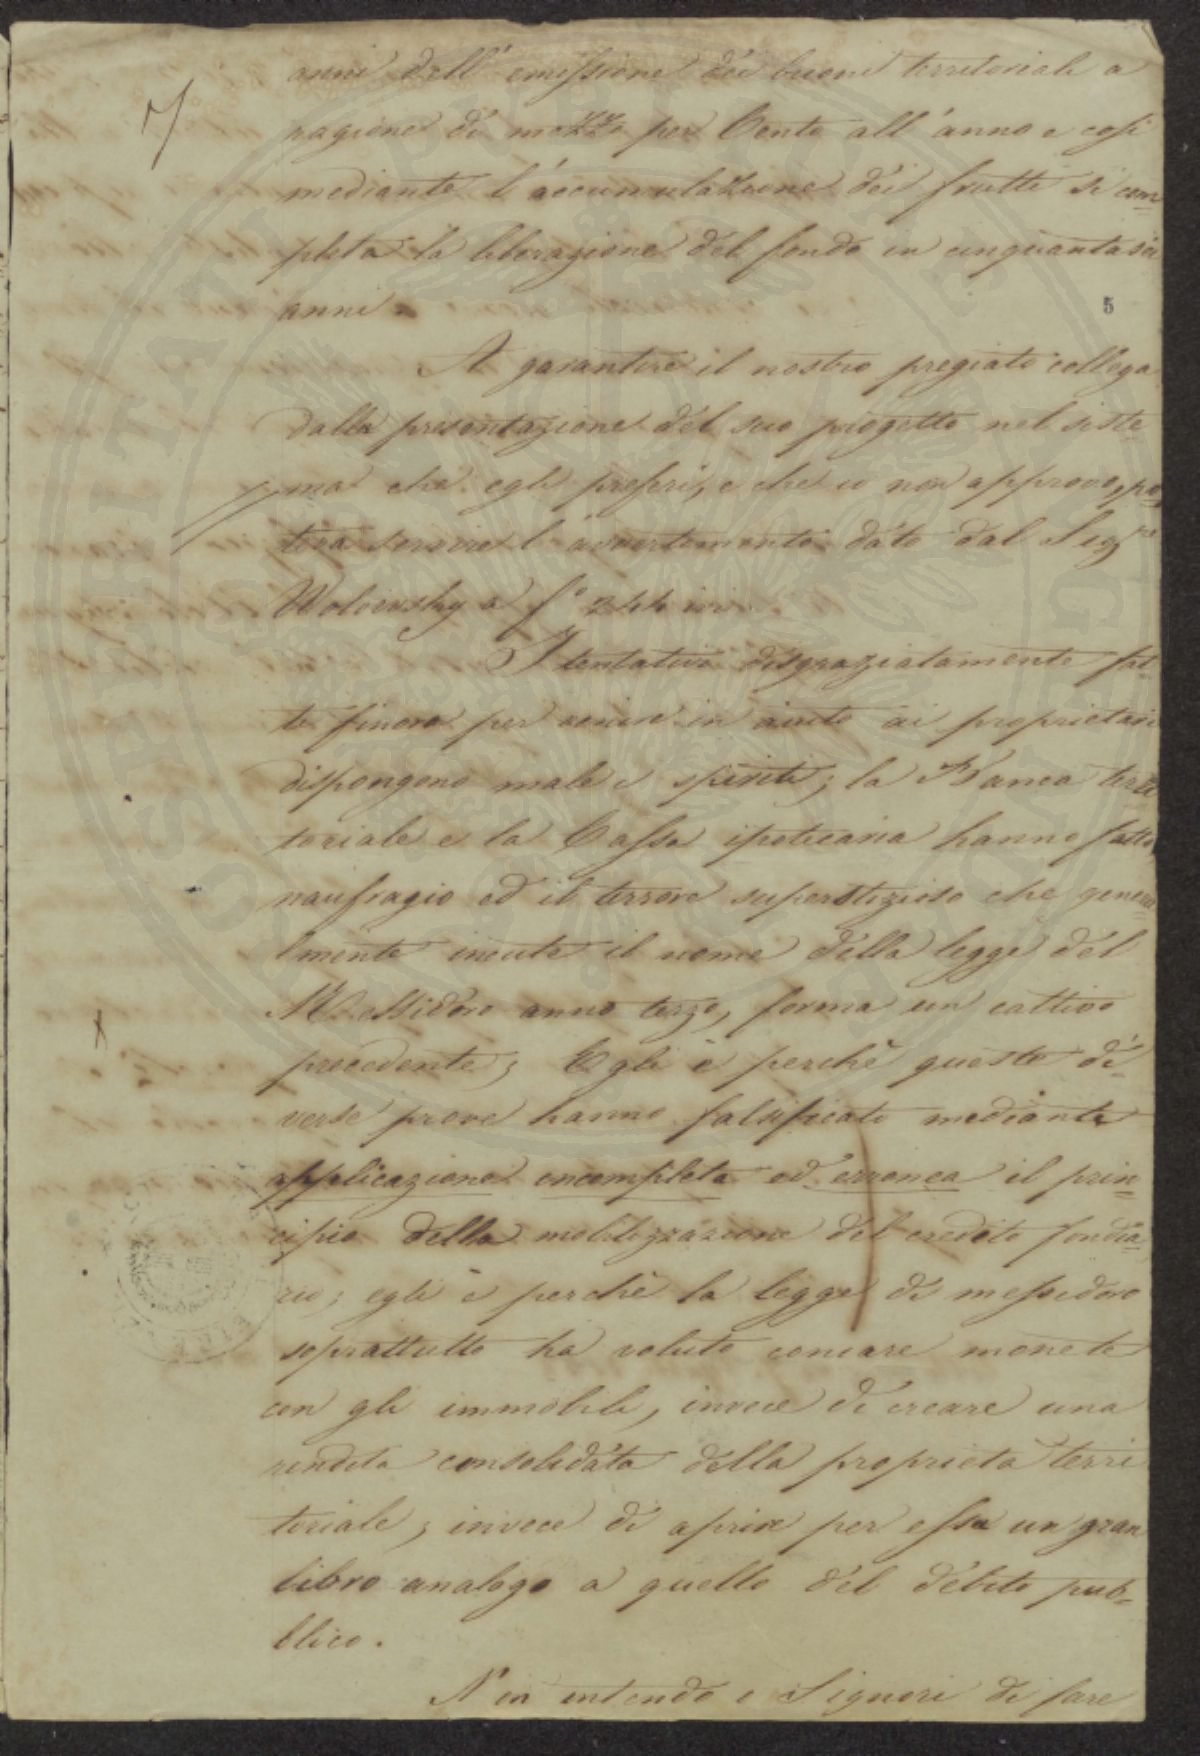 anni dall'emissione dei buoni territoriali a
ragione di mezzo per Cento all'anno e così
mediante l'accumulazione dei frutti si com=
pleta la liberazione del fondo in cinquantasei
anni.
5
A garantire il nostro pregiato collega
dalla presentazione del suo progetto nel siste=
ma che egli preferì, e che io non approvo, po=
teva servire l'avvertimento dato dal Sig.re
Wolowsky a f.o 244 ivi.
I tentativi disgraziatamente fat=
ti finora per venire in aiuto ai proprietari
dispongono male i spiriti; la Banca terri
toriale e la Cassa ipotecaria hanno fatto
naufragio ed il terrore superstizioso che genera=
lmente incute il nome della legge del
Messidoro anno terzo, forma un cattivo
precedente; Egli è perché queste di=
verse prove hanno falsificato mediante
applicazione incompleta ed erronea il prin=
cipio della mobilizzazione del credito fondia=
rio; egli è perchè la legge di messidoro
soprattutto ha voluto coniare monete
con gli immobili, invece di creare una
rendita consolidata della proprietà terri
toriale; invece di aprire per essa un gran
libro analogo a quello del debito pub=
blico.
Non intendo o Signori di fare